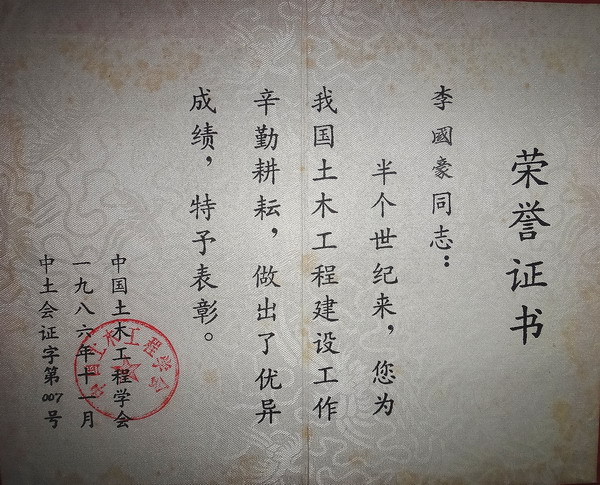 荣誉证书
李國豪同志：
半个世纪来，您为
我国土木工程建设工作
辛勤耕耘，做出了优异
成绩，特予表彰。
中国土木工程学会
一九八六年十一月
中土会证字第007号
中国土木工程学会